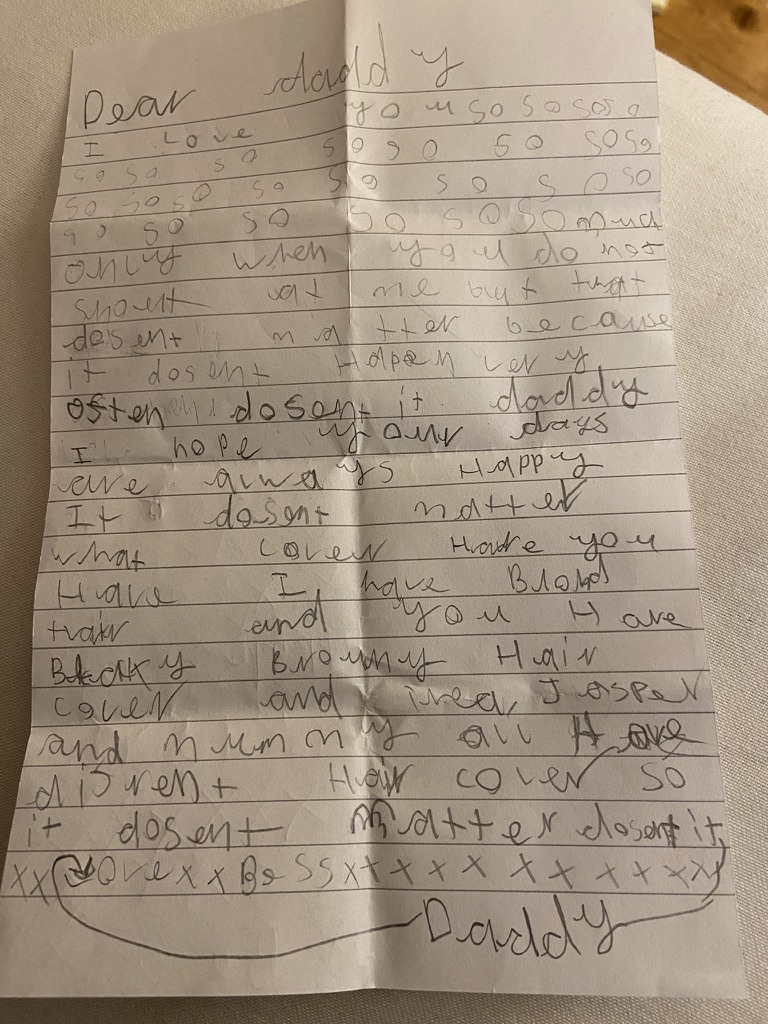 Dear daddy
I Love you so so soso
so so so so so so soso
so so so so so so so so so
so so so so so so much
only when you do not
shout at me but that
dosent matter because
it dosent Hapen very
often dosent it daddy
I hope your days
are always Happy
It dosent matter
what cover Hare you
Have I have Blond
Hair and you Have
Blacky Browny Hair
cover and Jasper
and mummy all Have
difrent Hair cover so
it dosent matter dosent it
xx Love xx Bess xx x x x x x x x xx
Daddy